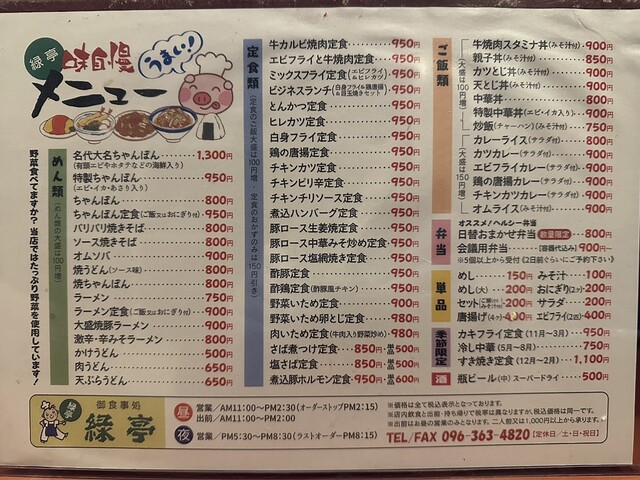 緑亭
味自慢
うまい!
メニュー
野菜食べてますか?当店ではたっぷり野菜を使用しています!
めん類
(めん類の大盛は100円増)
名代大名ちゃんぽん………1,300円
(有頭エビやホタテなどの海鮮入り)
特製ちゃんぽん………950円
(エビ・イカ・あさり入り)
ちゃんぽん………800円
ちゃんぽん定食(ご飯又はおにぎり付)…950円
バリバリ焼きそば………800円
ソース焼きそば………800円
オムソバ………900円
焼うどん(ソース味)………800円
焼ちゃんぽん………800円
ラーメン………750円
ラーメン定食(ご飯又はおにぎり付)…900円
大盛焼豚ラーメン………900円
激辛・辛みそラーメン………800円
かけうどん………500円
肉うどん………650円
天ぷらうどん………650円
定食類
(定食のご飯大盛は100円増・定食のおかずのみは150円引き)
牛カルビ焼肉定食………950円
エビフライと牛焼肉定食………950円
ミックスフライ定食(エビフライ&ヒレカツ)…950円
ビジネスランチ(白身フライ&鶏唐揚&目玉焼きセット)…950円
とんかつ定食………950円
ヒレカツ定食………950円
白身フライ定食………950円
鶏の唐揚定食………950円
チキンカツ定食………950円
チキンピリ辛定食………950円
チキンチリソース定食………950円
煮込ハンバーグ定食………950円
豚ロース生姜焼定食………950円
豚ロース中華みそ炒め定食…950円
豚ロース塩網焼き定食………950円
酢豚定食………950円
酢鶏定食(酢豚風チキン)………950円
野菜いため定食………900円
野菜いため卵とじ定食………980円
肉いため定食(牛肉入り野菜炒め)…980円
さば煮つけ定食…850円・単品500円
塩さば定食…850円・単品500円
煮込豚ホルモン定食…950円・単品600円
ご飯類
(大盛は100円増)
牛焼肉スタミナ丼(みそ汁付)・900円
親子丼(みそ汁付)………850円
カツとじ丼(みそ汁付)………900円
天とじ丼(みそ汁付)………900円
中華丼………800円
特製中華丼(エビ・イカ入り)…900円
炒飯(チャーハン)(みそ汁付)…750円
(大盛は100円増)
カレーライス(サラダ付)………800円
カツカレー(サラダ付)………900円
エビフライカレー(サラダ付)…900円
鶏の唐揚カレー(サラダ付)…900円
チキンカツカレー(サラダ付)…900円
オムライス(みそ汁付)………900円
弁当
オススメ!ヘルシー弁当
日替おまかせ弁当(数量限定)…800円
会議用弁当………(容器代込み)900円〜
※5個以上から受付(2日前ぐらいにご予約下さい)
単品
めし………150円 みそ汁…100円
めし(大)…200円 おにぎり(2ヶ)…200円
セット(ご飯(小)みそ汁付)…200円 サラダ…200円
唐揚げ(4ヶ) エビフライ(2匹)…400円
季節限定
カキフライ定食(11月〜3月)…950円
冷し中華(5月〜8月)………750円
すき焼き定食(12月〜2月)…1,100円
酒
瓶ビール(中) スーパードライ…500円
緑亭
御食事処
緑亭
昼 営業/AM11:00〜PM2:30(オーダーストップPM2:15)
出前/AM11:00〜PM2:00
夜 営業/PM5:30〜PM8:30(ラストオーダーPM8:15)
※価格は全て税込表示となっております。
※店内飲食と出前・持ち帰りで税率は異なりますが、税込価格は同一です。
※出前はお昼の営業のみとなります。二人前又は1,000円以上から承ります。
TEL/FAX 096-363-4820 [定休日/土・日・祝日]